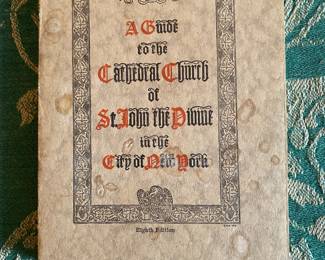 A Guide
to the
Cathedral Church
of
St. John the Divine
in the
City of New York
Eighth Edition